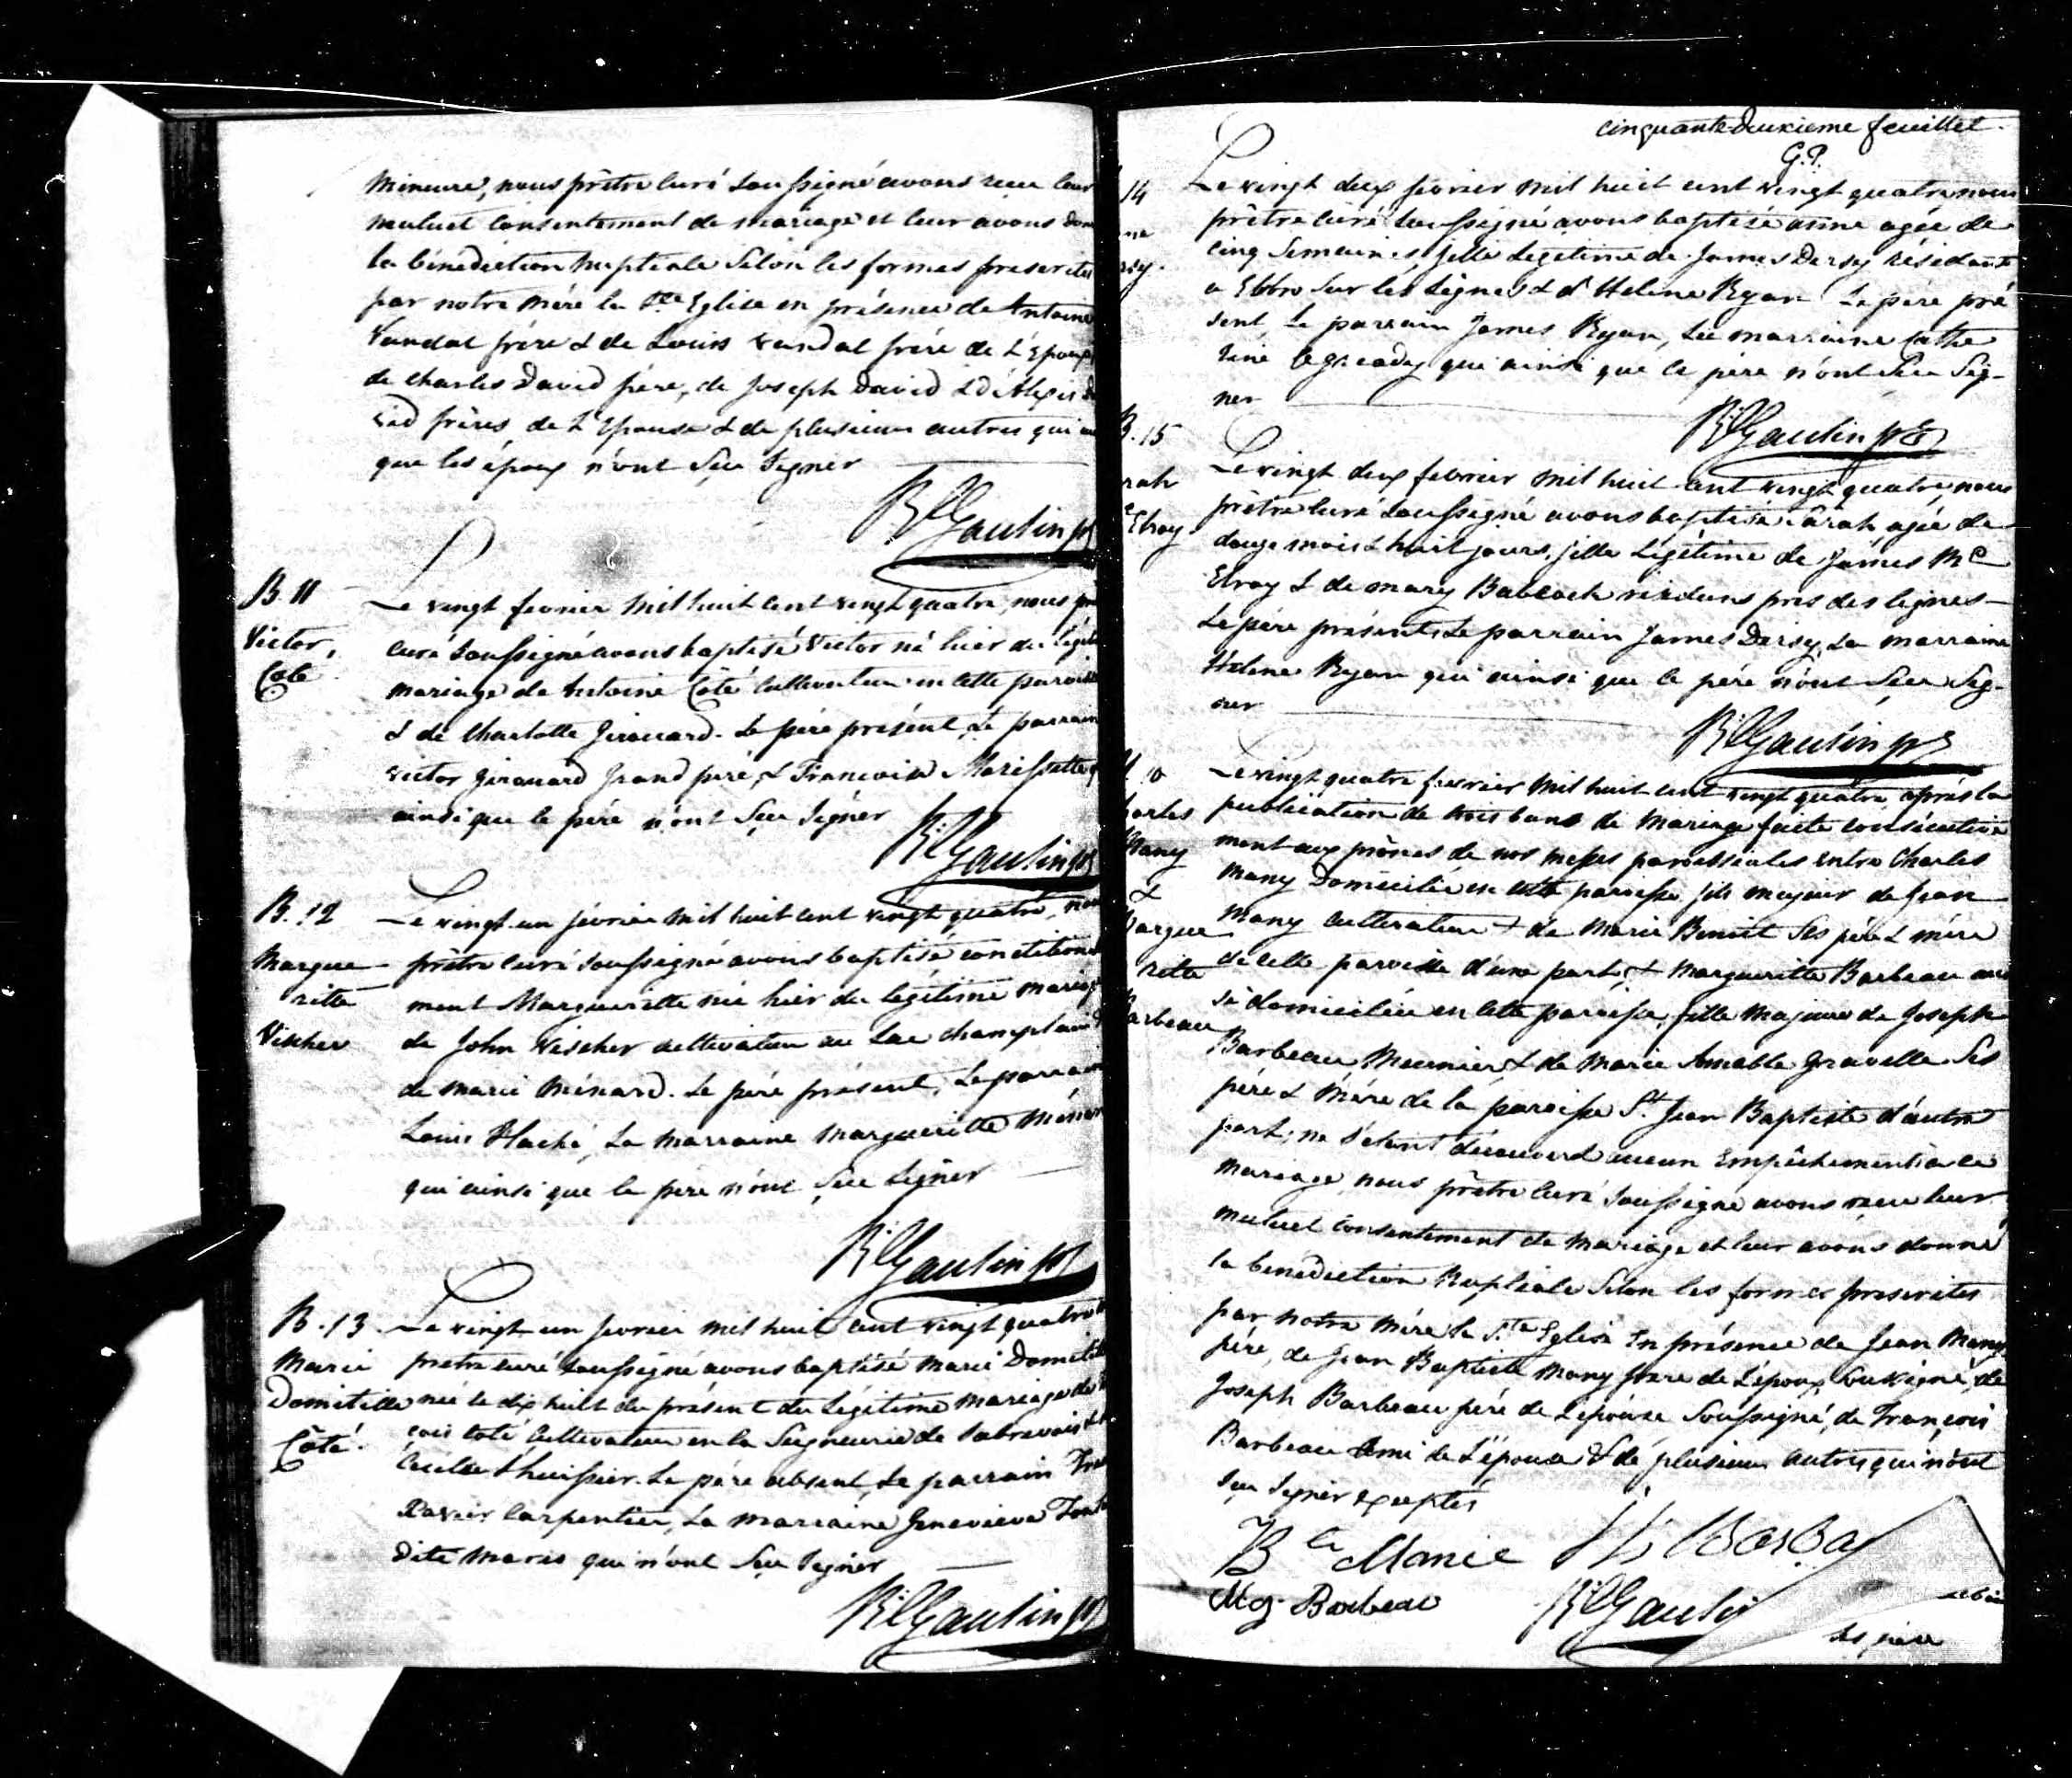 Mineure, nous prêtre curé soussigné avons recu leur
mutuel consentement de mariage et leur avons don
la bénédiction nuptiale selon les formes prescrites
par notre mère la Ste Eglise en présence de Antoine
Vandal frère & de Louis Vandal frère de L'Epoux
de Charles David père, de Joseph David & d'Alexis Da
vid frères de L'Epouse & de plusieurs autres qui
que les époux n'ont sçu signer
Rl Gaulin ptr
B. 11
Victor,
Coté
Le vingt fevrier mil huit cent vingt quatre, nous
curé soussigné avons baptisé Victor né hier du légit
mariage de Antoine Côté cultivateur en cette paroisse
& de Charlotte Girouard. Le père présent, Le parrain
Victor Girouard grand père, & Francoise Morissette
ainsi que le père n'ont sçu signer
Rl Gaulin ptr
B. 12
Margue
ritte
Vischer
Le vingt un février mil huit cent vingt quatre, nous
prêtre curé soussigné avons baptisé condition
ment Margueritte née hier du légitime mariage
de John Vischer cultivateur au Lac Champlain
de Marie Ménard. Le père présent, Le parrain
Louis Haché, La marraine Marguerite Ménar
qui ainsi que le père n'ont sçu signer
Rl Gaulin ptr
B. 13
Marie
Domitille
Côté
Le vingt un fevrier mil huit cent vingt quatre
pretre curé soussigné avons baptisé Marie Domitil
née le dix huit du présent du légitime mariage de
cois Coté cultivateur en la Seigneurie de Sabrevois &
Cécile L'huissier. Le père absent, Le parrain
Xavier Carpentier, La marraine Genevieve
dite Maris qui n'ont sçu signer
Rl Gaulin ptr
cinquante-deuxieme feuillet.
G.P.
14
Le vingt deux février mil huit cent vingt quatre nous
prêtre curé soussigné avons baptisé anne agée de
cinq semaines, fille legitime de James Dersy résidant
a sur les lignes & d'Helene Ryan Le père pré
sent, Le parrain James Ryan, La marraine Cathe
rine qui ainsi que le père n'ont sçu sig-
ner
Rl Gaulin ptr
B. 15
rah
Elroy
Le vingt deux febrier mil huit cent vingt quatre, nous
prêtre curé soussigné avons baptisé Sarah, agée de
douze mois & huit jours, fille légitime de James Mc
Elroy & de Mary Babcock résidans près des lignes
Le père présent, Le parrain James Dersy, La marraine
Hélene Ryan qui ainsi que le père n'ont sçu sig-
ner
Rl Gaulin ptr
M. 10
harles
Many
&
Margue
ritte
Barbeau
Le vingt quatre fevrier mil huit cent vingt quatre, après la
publication de trois bans de mariage faite consécutive
ment aux prônes de nos messes paroissiales entre Charles
Many Domicilié en cette paroisse, fils majeur de Jean
Many cultivateur & de Marie Benoit ses père & mère
de cette paroisse d'une part, & Marguerite Barbeau aus
si domiciliée en cette paroisse, fille majeure de Joseph
Barbeau, Meunier, & de Marie Amable Gravelle ses
père & mère de la paroisse St Jean Baptiste d'autre
part; ne s'étant découvert aucun empêchement à ce
mariage, nous prêtre curé soussigné avons recu leur
mutuel consentement de mariage et leur avons donné
la bénédiction nuptiale selon les formes prescrites
par notre mère la Ste Eglise en présence de Jean Many
père, de Jean Baptiste Many frère de L'époux soussigné, de
Joseph Barbeau père de L'épouse soussigné, de François
Barbeau ami de L'épouse & de plusieurs autres qui n'ont
sçu signer exceptés
Bte Manie
Mg. Barbeau
Rl Gaulin